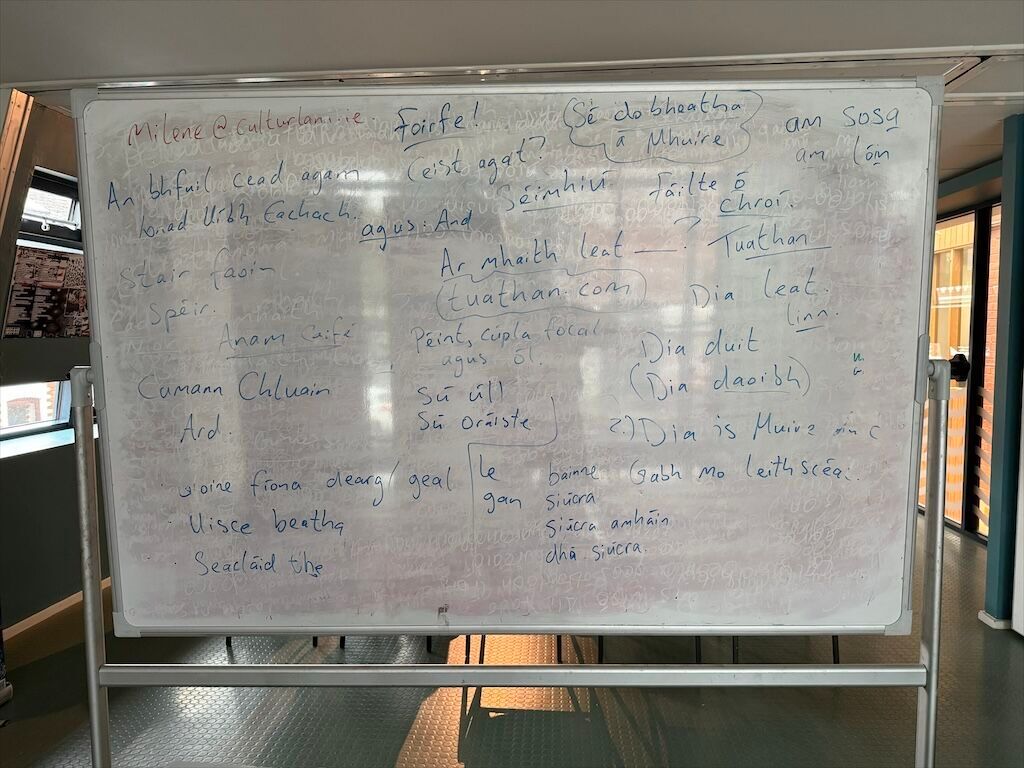 Milene@culturlann.ie
Foirfe!
Sé do bheatha
a Mhuire
am sosa
am lóin
An bhfuil cead agam
Ceist agat?
Séimhiú
Fáilte ó
chroí.
Uíbh Eachach.
agus: And
Ar mhaith leat — ?
Tuathan
Stair faoin
Spéir.
tuathan.com
Dia leat.
linn.
Anam Caifé
Péint, cúpla focal
agus ól.
Dia duit
(Dia daoibh)
Cumann Chluain
Ard.
Sú úll
Sú oráiste
2.) Dia is Muire
fíona dearg/geal
le
gan
bainne
siúcra
siúcra amháin
dhá siúcra.
Gabh mo leithscéal
Uisce beatha
Seacláid the